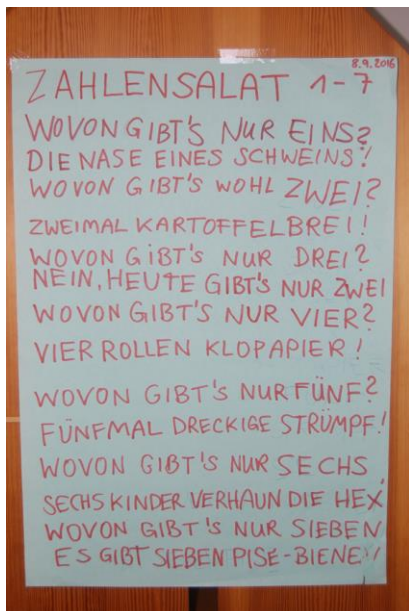 8.9.2016
ZAHLENSALAT 1-7
WOVON GIBT'S NUR EINS?
DIE NASE EINES SCHWEINS!
WOVON GIBT'S WOHL ZWEI?
ZWEIMAL KARTOFFELBREI!
WOVON GIBT'S NUR DREI?
NEIN, HEUTE GIBT'S NUR ZWEI
WOVON GIBT'S NUR VIER?
VIER ROLLEN KLOPAPIER!
WOVON GIBT'S NUR FÜNF?
FÜNFMAL DRECKIGE STRÜMPF!
WOVON GIBT'S NUR SECHS
SECHS KINDER VERHAUN DIE HEX
WOVON GIBT'S NUR SIEBEN
ES GIBT SIEBEN PISE-BIENEN!